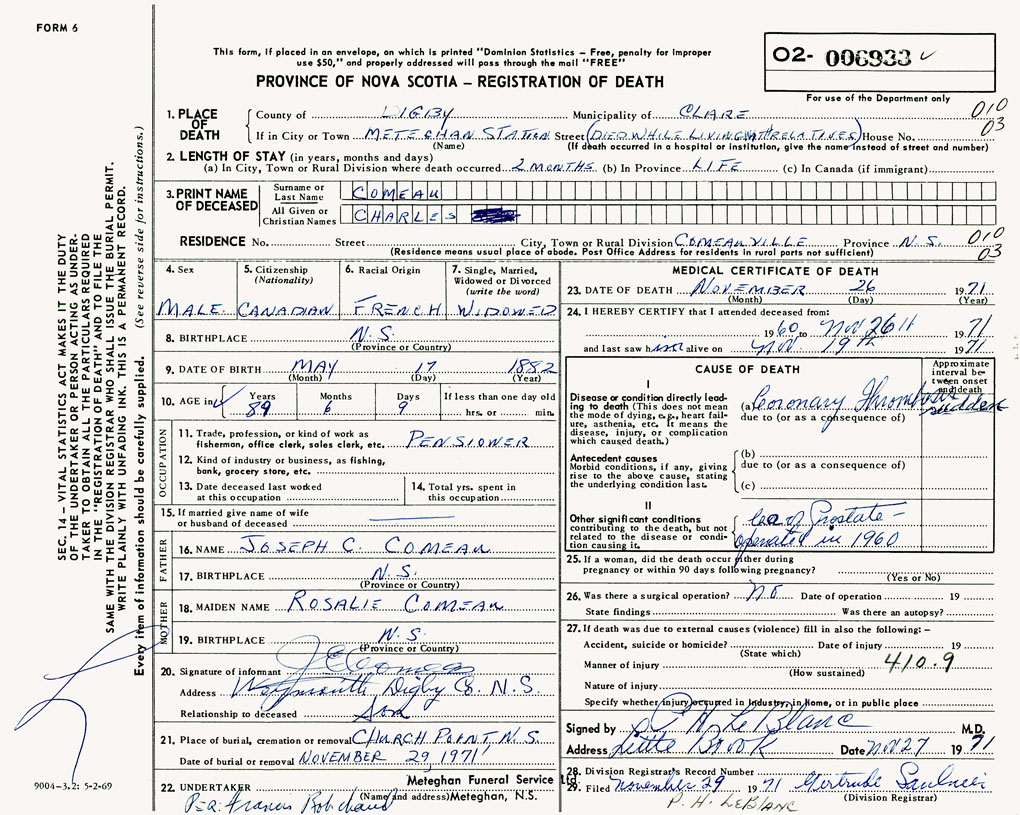 FORM 6
This form, if placed in an envelope, on which is printed "Dominion Statistics – Free, penalty for improper
use $50," and properly addressed will pass through the mail "FREE"
PROVINCE OF NOVA SCOTIA – REGISTRATION OF DEATH
02- 006933 ✓
For use of the Department only
1. PLACE OF DEATH
County of DIGBY Municipality of CLARE 010
If in City or Town METEGHAN STATION Street (DIED WHILE LIVING WITH RELATIVES) House No. 03
(Name) (If death occurred in a hospital or institution, give the name instead of street and number)
2. LENGTH OF STAY (in years, months and days)
(a) In City, Town or Rural Division where death occurred 2 MONTHS (b) In Province LIFE (c) In Canada (if immigrant)
3. PRINT NAME OF DECEASED
Surname or Last Name COMEAU
All Given or Christian Names CHARLES
RESIDENCE No. Street City, Town or Rural Division COMEAUVILLE Province N.S. 010
(Residence means usual place of abode. Post Office Address for residents in rural parts not sufficient) 03
4. Sex 5. Citizenship (Nationality) 6. Racial Origin 7. Single, Married, Widowed or Divorced (write the word)
MALE CANADIAN FRENCH WIDOWED
8. BIRTHPLACE N.S.
(Province or Country)
9. DATE OF BIRTH MAY 17 1882
(Month) (Day) (Year)
10. AGE in ✓ Years Months Days If less than one day old
89 6 9 hrs. or min.
OCCUPATION
11. Trade, profession, or kind of work as
fisherman, office clerk, sales clerk, etc. PENSIONER
12. Kind of industry or business, as fishing,
bank, grocery store, etc.
13. Date deceased last worked
at this occupation
14. Total yrs. spent in
this occupation
15. If married give name of wife
or husband of deceased
FATHER
16. NAME JOSEPH C. COMEAU
17. BIRTHPLACE N.S.
(Province or Country)
MOTHER
18. MAIDEN NAME ROSALIE COMEAU
19. BIRTHPLACE N.S.
(Province or Country)
20. Signature of informant J C Comeau
Address Weymouth Digby Co. N.S.
Relationship to deceased Son
21. Place of burial, cremation or removal CHURCH POINT, N.S.
Date of burial or removal NOVEMBER 29, 1971
22. UNDERTAKER Meteghan Funeral Service Ltd.
(Name and address) Meteghan, N.S.
Per: Francis Robichaud
MEDICAL CERTIFICATE OF DEATH
23. DATE OF DEATH NOVEMBER 26 1971
(Month) (Day) (Year)
24. I HEREBY CERTIFY that I attended deceased from:
1960 to Nov 26th 1971
and last saw him alive on Nov. 19th 1971
CAUSE OF DEATH
Approximate interval between onset and death
I
Disease or condition directly leading to death (This does not mean
the mode of dying, e.g., heart failure, asthenia, etc. It means the
disease, injury, or complication
which caused death.)
(a) Coronary Thrombosis sudden
due to (or as a consequence of)
Antecedent causes
Morbid conditions, if any, giving
rise to the above cause, stating
the underlying condition last.
(b)
due to (or as a consequence of)
(c)
II
Other significant conditions
contributing to the death, but not
related to the disease or condition causing it.
Ca of Prostate –
operated in 1960
25. If a woman, did the death occur either during
pregnancy or within 90 days following pregnancy?
(Yes or No)
26. Was there a surgical operation? no Date of operation 19
State findings Was there an autopsy?
27. If death was due to external causes (violence) fill in also the following: –
Accident, suicide or homicide? Date of injury 19
(State which)
Manner of injury 410.9
(How sustained)
Nature of injury
Specify whether injury occurred in Industry, in Home, or in public place
Signed by P H LeBlanc M.D.
Address Little Brook Date Nov 27 1971
28. Division Registrar's Record Number
29. Filed November 29 1971 Gertrude Saulnier
(Division Registrar)
P. H. LEBLANC
SEC. 14 – VITAL STATISTICS ACT MAKES IT THE DUTY
OF THE UNDERTAKER OR PERSON ACTING AS UNDERTAKER TO OBTAIN ALL THE PARTICULARS REQUIRED
IN THE "REGISTRATION OF DEATH" AND TO FILE THE
SAME WITH THE DIVISION REGISTRAR WHO SHALL ISSUE THE BURIAL PERMIT.
WRITE PLAINLY WITH UNFADING INK. THIS IS A PERMANENT RECORD.
Every item of information should be carefully supplied. (See reverse side for instructions.)
9004-3.2: 5-2-69